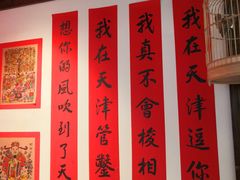 我在天津逗你
我真不會梭相
我在天津管鑿
想你的風吹到了天